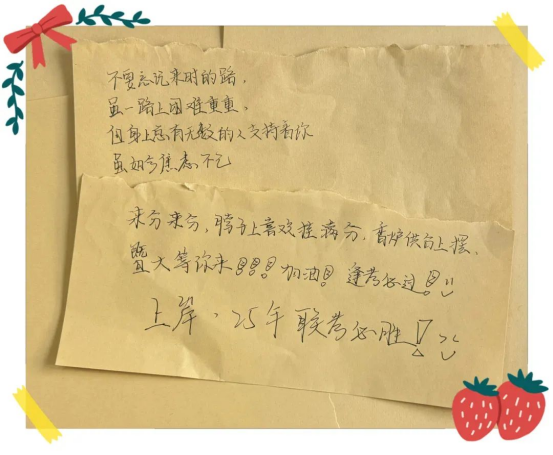 不要忘记来时的路，
虽一路上困难重重、
但身上总有无数的人支持着你
虽如今焦虑不已
来分来分，脖子上喜欢挂满分，香炉供台上摆，
暨大等你来！！！加油！逢考必过！
上岸，25年联考必胜！